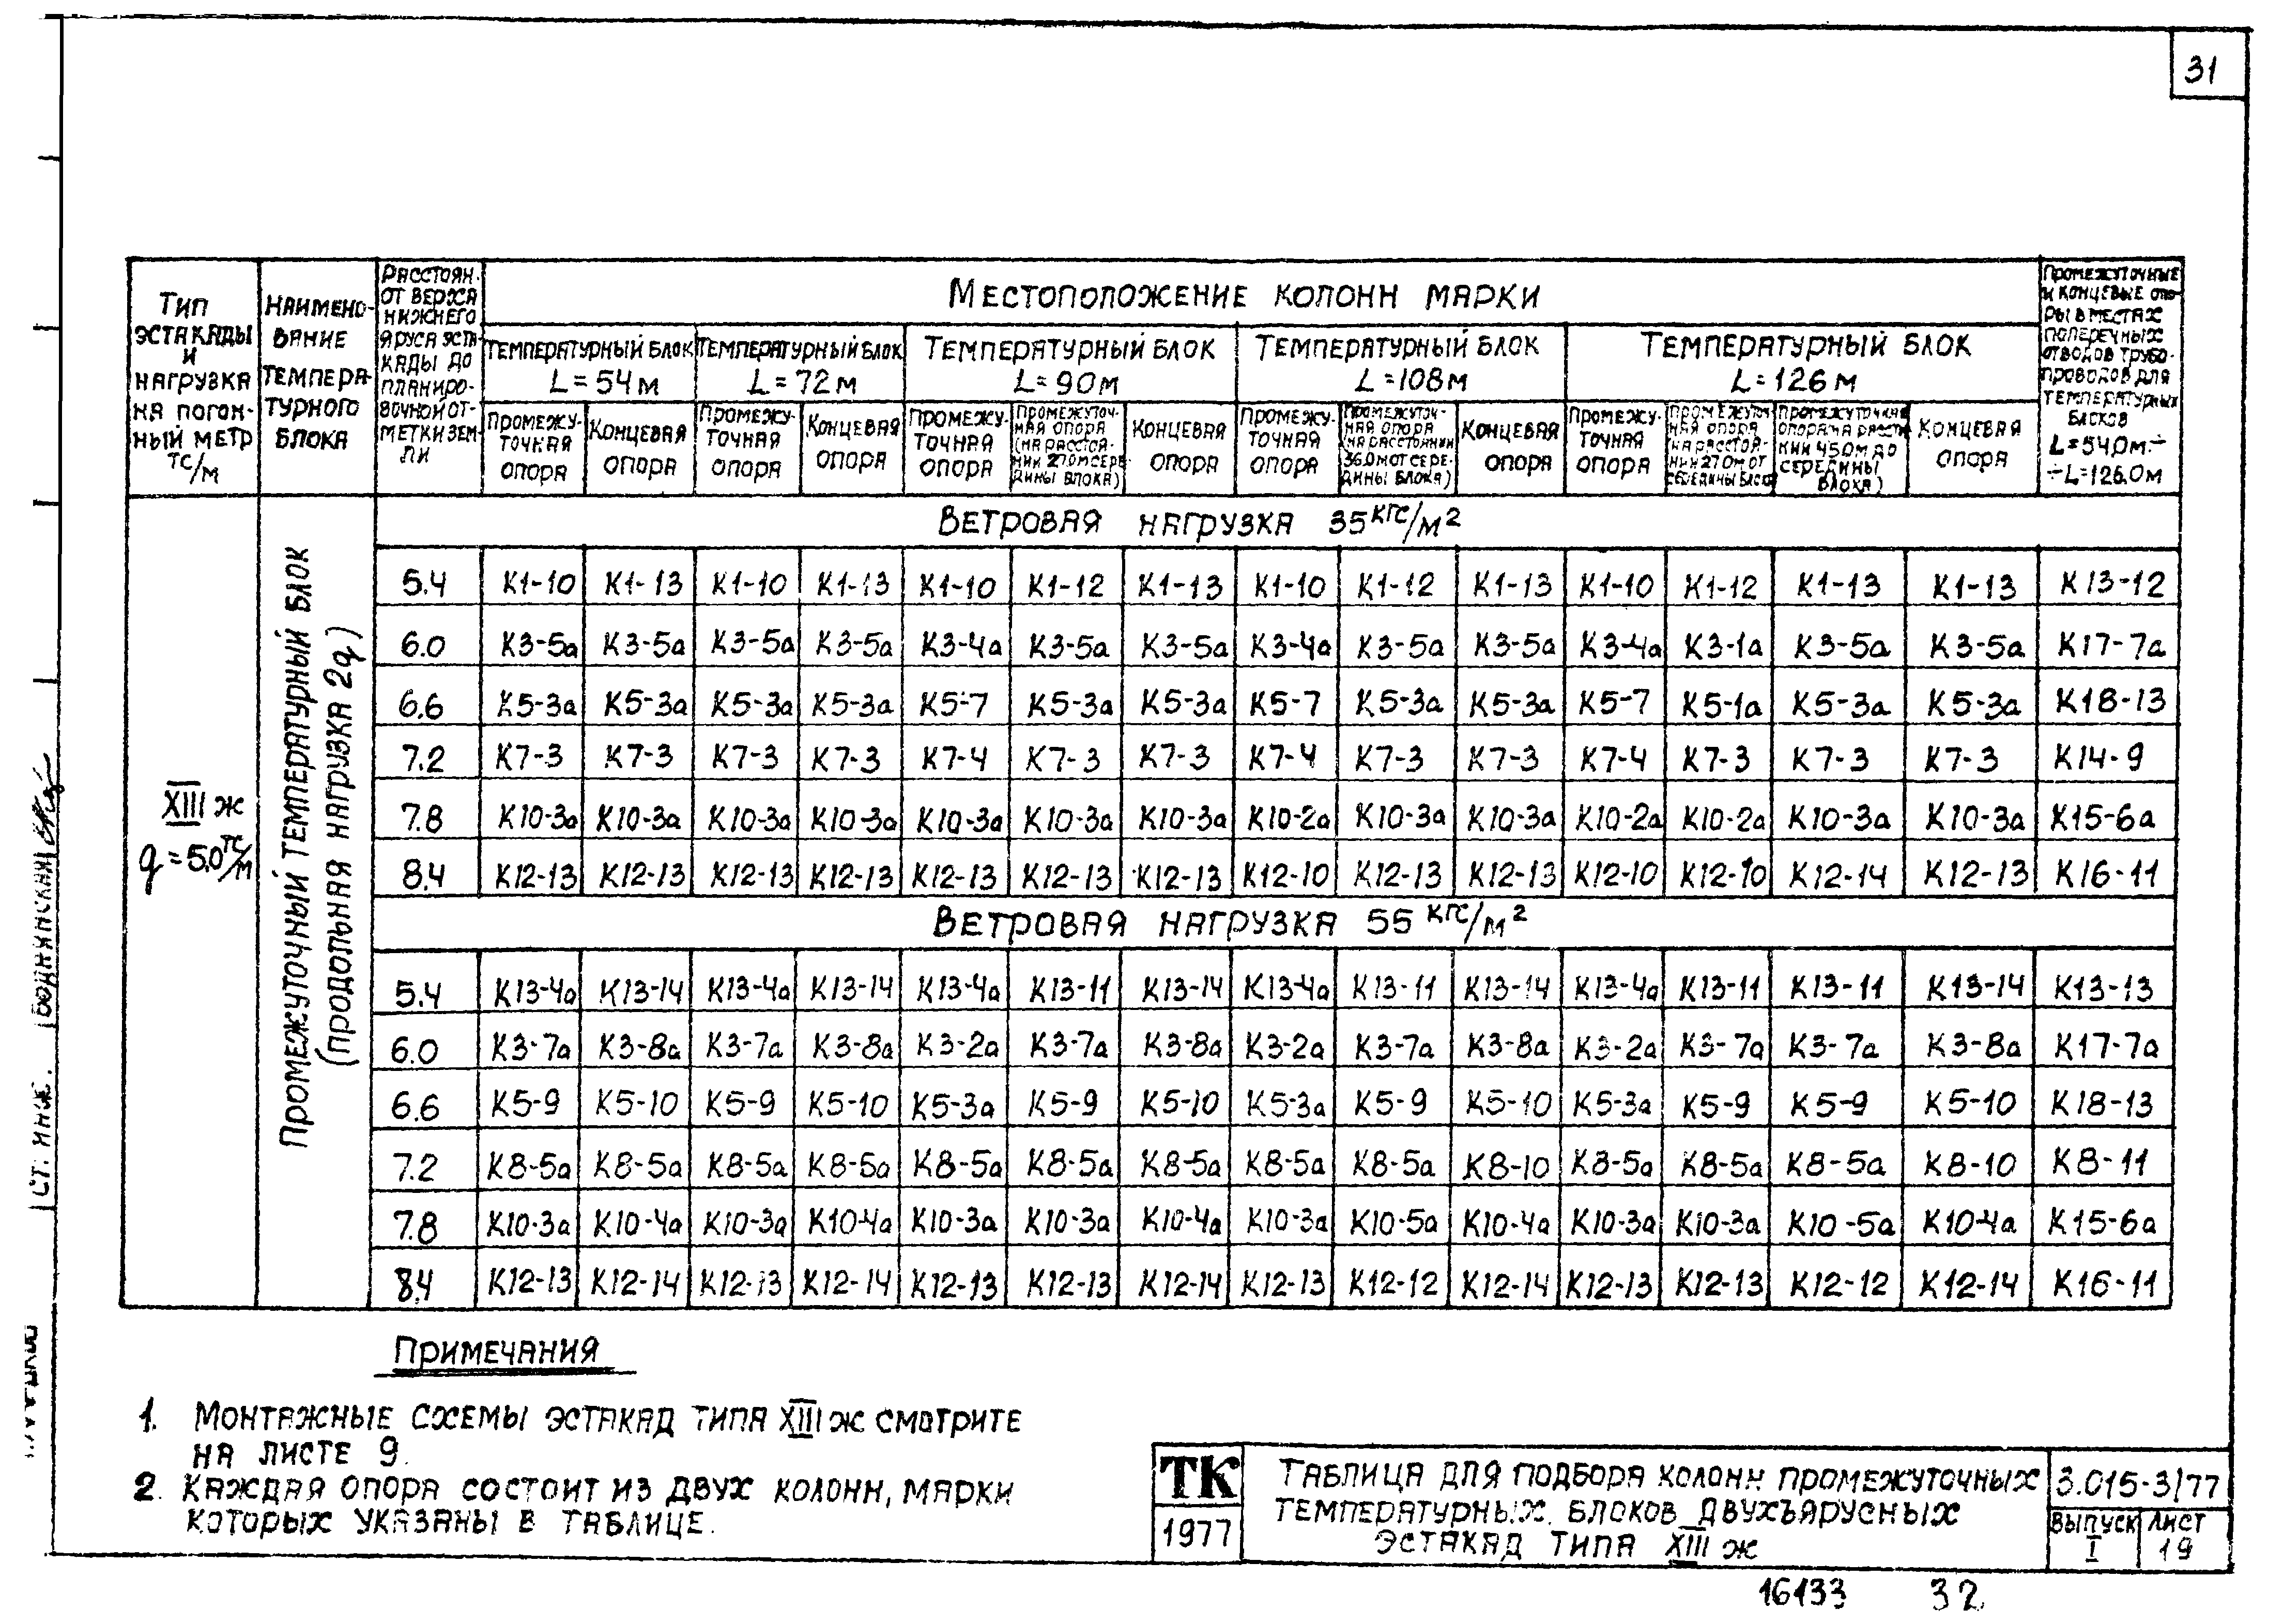 31
Тип эстакады и нагрузка на погонный метр тс/м
Наименование температурного блока
Расстоян. от верха нижнего яруса эстакады до планировочной отметки земли
Местоположение колонн марки
Промежуточные и концевые опоры в местах поперечных отводов трубопроводов для температурных блоков L=54,0м÷÷L=126.0м
Температурный блок L=54м
Температурный блок L=72м
Температурный блок L=90м
Температурный блок L=108м
Температурный блок L=126м
Промежуточная опора
Концевая опора
Промежуточная опора
Концевая опора
Промежуточная опора
Промежуточная опора (на расстоянии 27.0м середины блока)
Концевая опора
Промежуточная опора
Промежуточная опора (на расстоянии 36.0м от середины блока)
Концевая опора
Промежуточная опора
Промежуточная опора на расстоянии 27.0м от середины блока
Промежуточная опора на расстянии 45.0м до середины блока)
Концевая опора
XIII ж
q=5.0 тс/м
Промежуточный температурный блок
(продольная нагрузка 2q)
Ветровая нагрузка 35 кгс/м²
5.4 К1-10 К1-13 К1-10 К1-13 К1-10 К1-12 К1-13 К1-10 К1-12 К1-13 К1-10 К1-12 К1-13 К1-13 К13-12
6.0 К3-5а К3-5а К3-5а К3-5а К3-4а К3-5а К3-5а К3-4а К3-5а К3-5а К3-4а К3-1а К3-5а К3-5а К17-7а
6.6 К5-3а К5-3а К5-3а К5-3а К5-7 К5-3а К5-3а К5-7 К5-3а К5-3а К5-7 К5-1а К5-3а К5-3а К18-13
7.2 К7-3 К7-3 К7-3 К7-3 К7-4 К7-3 К7-3 К7-4 К7-3 К7-3 К7-4 К7-3 К7-3 К7-3 К14-9
7.8 К10-3а К10-3а К10-3а К10-3а К10-3а К10-3а К10-3а К10-2а К10-3а К10-3а К10-2а К10-2а К10-3а К10-3а К15-6а
8.4 К12-13 К12-13 К12-13 К12-13 К12-13 К12-13 К12-13 К12-10 К12-13 К12-13 К12-10 К12-10 К12-14 К12-13 К16-11
Ветровая нагрузка 55 кгс/м²
5.4 К13-4а К13-14 К13-4а К13-14 К13-4а К13-11 К13-14 К13-4а К13-11 К13-14 К13-4а К13-11 К13-11 К13-14 К13-13
6.0 К3-7а К3-8а К3-7а К3-8а К3-2а К3-7а К3-8а К3-2а К3-7а К3-8а К3-2а К3-7а К3-7а К3-8а К17-7а
6.6 К5-9 К5-10 К5-9 К5-10 К5-3а К5-9 К5-10 К5-3а К5-9 К5-10 К5-3а К5-9 К5-9 К5-10 К18-13
7.2 К8-5а К8-5а К8-5а К8-5а К8-5а К8-5а К8-5а К8-5а К8-5а К8-10 К8-5а К8-5а К8-5а К8-10 К8-11
7.8 К10-3а К10-4а К10-3а К10-4а К10-3а К10-3а К10-4а К10-3а К10-5а К10-4а К10-3а К10-3а К10-5а К10-4а К15-6а
8.4 К12-13 К12-14 К12-13 К12-14 К12-13 К12-13 К12-14 К12-13 К12-12 К12-14 К12-13 К12-13 К12-12 К12-14 К16-11
Примечания
1. Монтажные схемы эстакад типа XIII ж смотрите
на листе 9.
2. Каждая опора состоит из двух колонн, марки
которых указаны в таблице.
ТК
1977
Таблица для подбора колонн промежуточных
температурных блоков двухъярусных
эстакад типа XIII ж
3.015-3/77
Выпуск I
Лист 19
16133 32
Ст. инж.